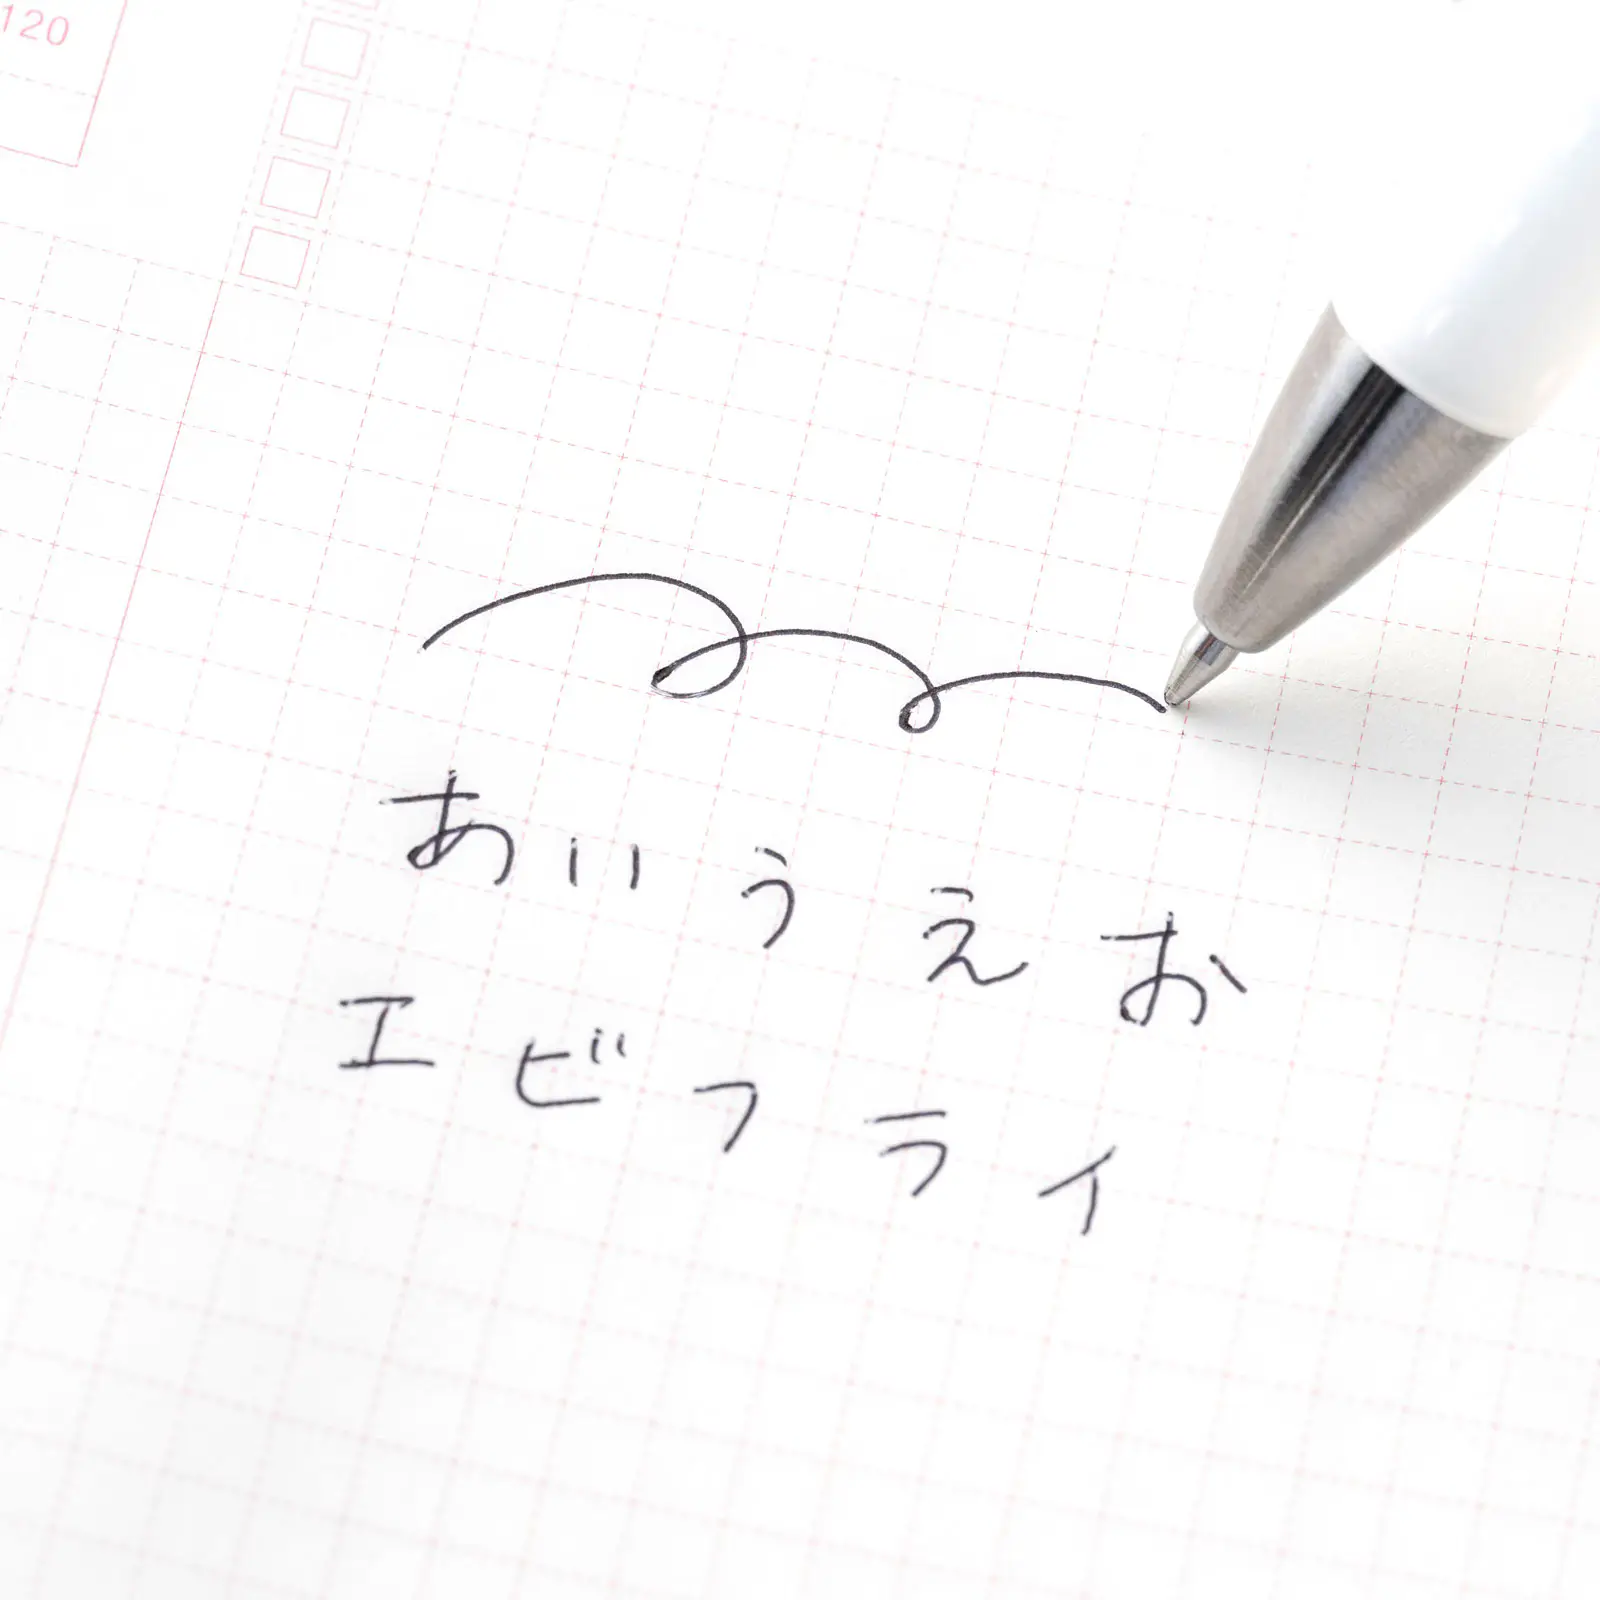 120
あいうえお
エビフライ